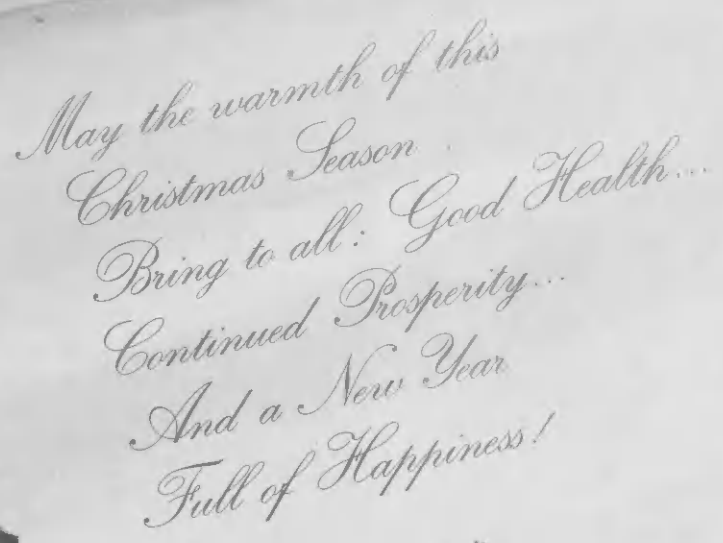 May the warmth of this
Christmas Season
Bring to all: Good Health...
Continued Prosperity...
And a New Year
Full of Happiness!